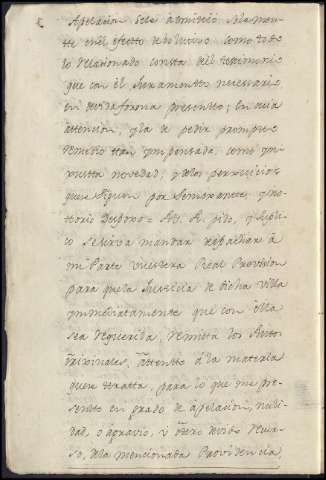 Apelacion se le admitió sola mente
tte en el efecto debolutivo como todo
lo relacionado consta del testimonio
que con el Juramentto necessario
en devida forma presentto; En cuia
attencion, y la de pedir prompto
remedio ttan ympensada, como yn
justta novedad; y a los perjuicios
que se siguen por semejante, y no
ttorio Despojo = A V. A. pido, y supli
co se sirva mandar despachar â
mi Parte vuestra Real Provision
para que la Justicia de dicha villa
ynmediatamente que con ella
sea requerida, remita los Autos
originales, âttentto â la materia
que se tratta, para lo que me pre
sentto en grado de âpelacion, nuli-
dad, o âgravio, ù ôtro devido recur-
so, de la mencionada Providencia